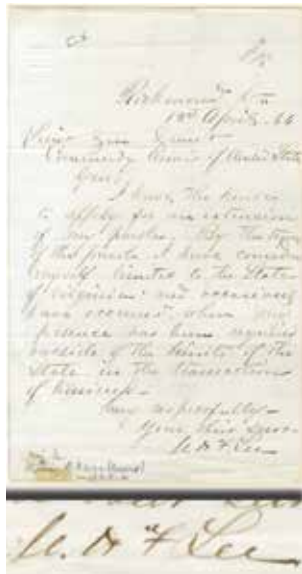 Richmond Va
April 66
Lieut Gen Grant
Commandg Armies of United States
Genl
I have the honor
to apply for an extension
of my parole. By the
of this parole I have
myself limited to the State
of Virginia: and occasions
have occurred when my
presence has been required
outside of the limits of the
State in the transaction
of business.
respectfully
Your
W. H. F. Lee
W. H. F. Lee